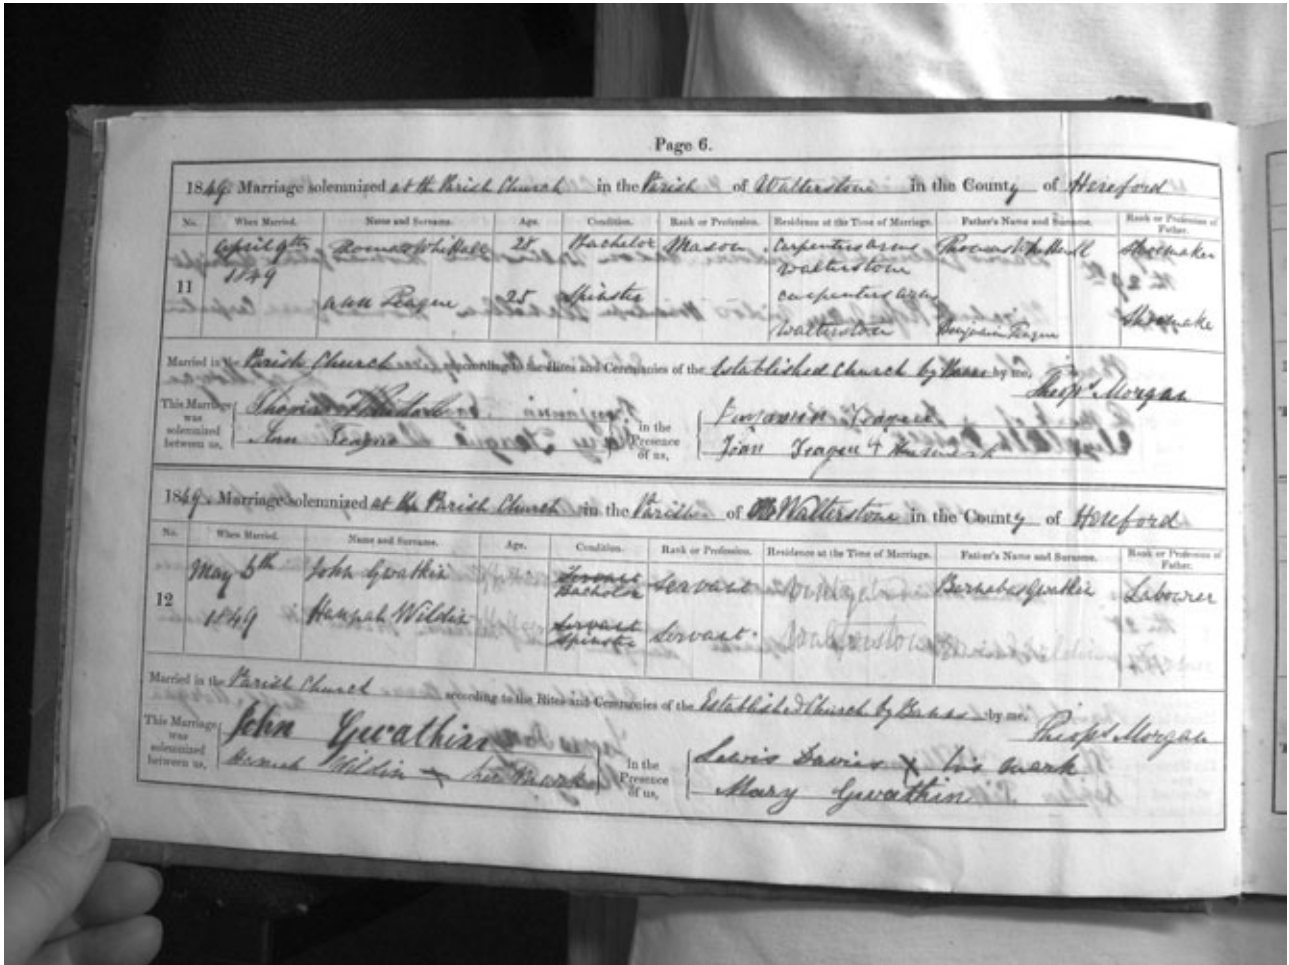 Page 6.
1849. Marriage solemnized at the Parish Church in the Parish of Walterstone in the County of Hereford
No. When Married. Name and Surname. Age. Condition. Rank or Profession. Residence at the Time of Marriage. Father's Name and Surname. Rank or Profession of Father.
11 April 9th 1849 Thomas Whittall 28 Bachelor Mason Carpenters arms Walterstone Thomas Whittall Shoemaker
Ann Teague 25 Spinster Carpenters arms Walterstone Benjamin Teague Shoemake
Married in the Parish Church according to the Rites and Ceremonies of the Established Church by Banns by me, Theops Morgan
This Marriage was solemnized between us, Thomas
Ann Teague
in the Presence of us, Benjamin
Teague
1849. Marriage solemnized at the Parish Church in the Parish of Walterstone in the County of Hereford
No. When Married. Name and Surname. Age. Condition. Rank or Profession. Residence at the Time of Marriage. Father's Name and Surname. Rank or Profession of Father.
12 May 5th 1849 John Gwatkin Servant Bachelor Servant Barnabas Gwatkin Labourer
Hannah Wildin Servant Spinster Servant Walterstone
Married in the Parish Church according to the Rites and Ceremonies of the Established Church by Banns by me, Theops Morgan
This Marriage was solemnized between us, John Gwatkin
Wildin x her mark
in the Presence of us, Lewis Davies x his mark
Mary Gwatkin